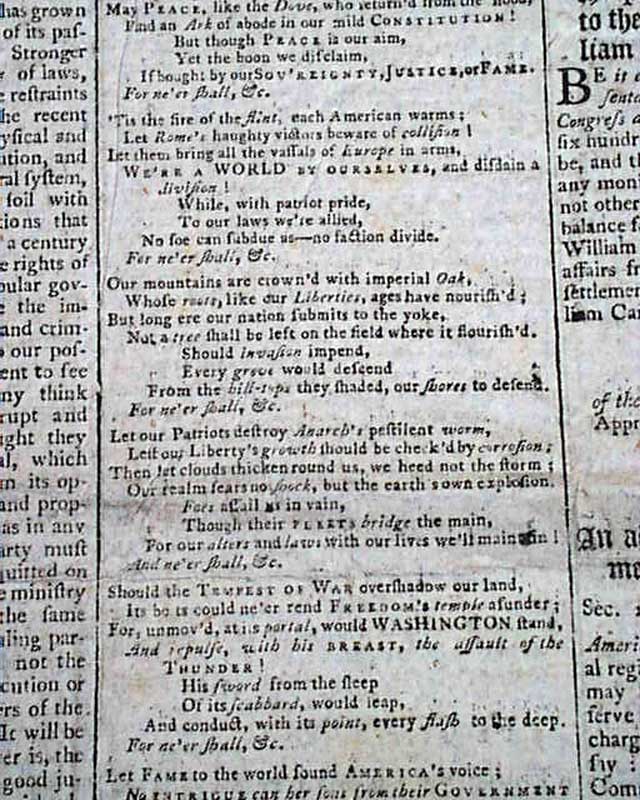 has grown
of its pas-
Stronger
of laws,
restraints
he recent
ysical and
ution, and
ral system,
foil with
tions that
a century
e rights of
pular gov-
e the im-
and crim-
our pos-
ent to see
ny think
rupt and
ght they
al, which
n its op-
and prop-
as in any
arty must
quitted on
e ministry
the same
aling par-
not the
cution or
rs of the
It will be
er is, the
good ju-
May PEACE, like the Dove, who return'd from the flood,
Find an Ark of abode in our mild CONSTITUTION!
But though PEACE is our aim,
Yet the boon we disclaim,
If bought by our SOV'REIGNTY, JUSTICE, or FAME.
For ne'er shall, &c.
'Tis the fire of the flint, each American warms;
Let Rome's haughty victors beware of collision!
Let them bring all the vassals of Europe in arms,
WE'RE A WORLD BY OURSELVES, and disdain a
division!
While, with patriot pride,
To our laws we're allied,
No foe can subdue us—no faction divide.
For ne'er shall, &c.
Our mountains are crown'd with imperial Oak,
Whose roots, like our Liberties, ages have nourish'd;
But long ere our nation submits to the yoke,
Not a tree shall be left on the field where it flourish'd.
Should invasion impend,
Every grove would descend
From the hill-tops they shaded, our shores to defend.
For ne'er shall, &c.
Let our Patriots destroy Anarch's pestilent worm,
Lest our Liberty's growth should be check'd by corrosion;
Then let clouds thicken round us, we heed not the storm;
Our realm fears no shock, but the earth's own explosion.
Foes assail us in vain,
Though their FLEETS bridge the main,
For our alters and laws with our lives we'll maintain!
And ne'er shall, &c.
Should the TEMPEST OF WAR overshadow our land,
Its bolts could ne'er rend FREEDOM'S temple asunder;
For, unmov'd, at its portal, would WASHINGTON stand,
And repulse, with his BREAST, the assault of the
THUNDER!
His sword from the sleep
Of its scabbard, would leap,
And conduct, with its point, every flash to the deep.
For ne'er shall, &c.
Let FAME to the world sound AMERICA'S voice;
No INTRIGUE can her sons from their GOVERNMENT
to the
liam
BE it
senta
Congress a
six hundr
be, and th
any mon
not other
balance fo
William
affairs fr
settlemen
liam Car
of the
Appr
An a
me
Sec.
Ameri
al reg
may
serve
charg
sry:
Com